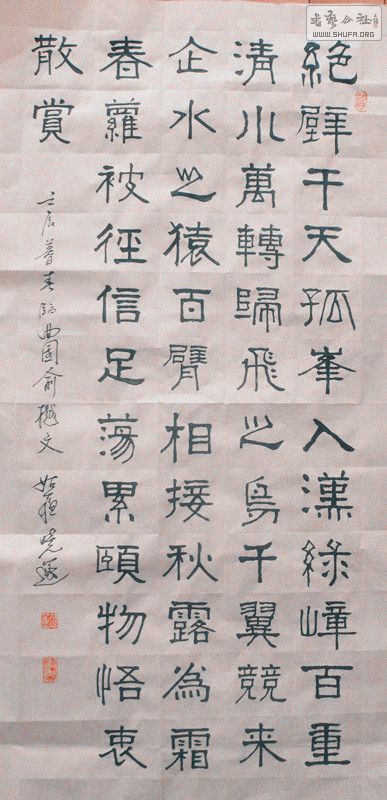 絕壁干天孤峯入漢綠嶂百重
清川萬轉歸飛之鳥千翼競来
企水之猿百臂相接秋露為霜
春蘿被徑信足蕩累頤物悟衷
散賞
壬辰暮春臨曲園俞樾文
书艺公社
WWW.SHUFA.ORG